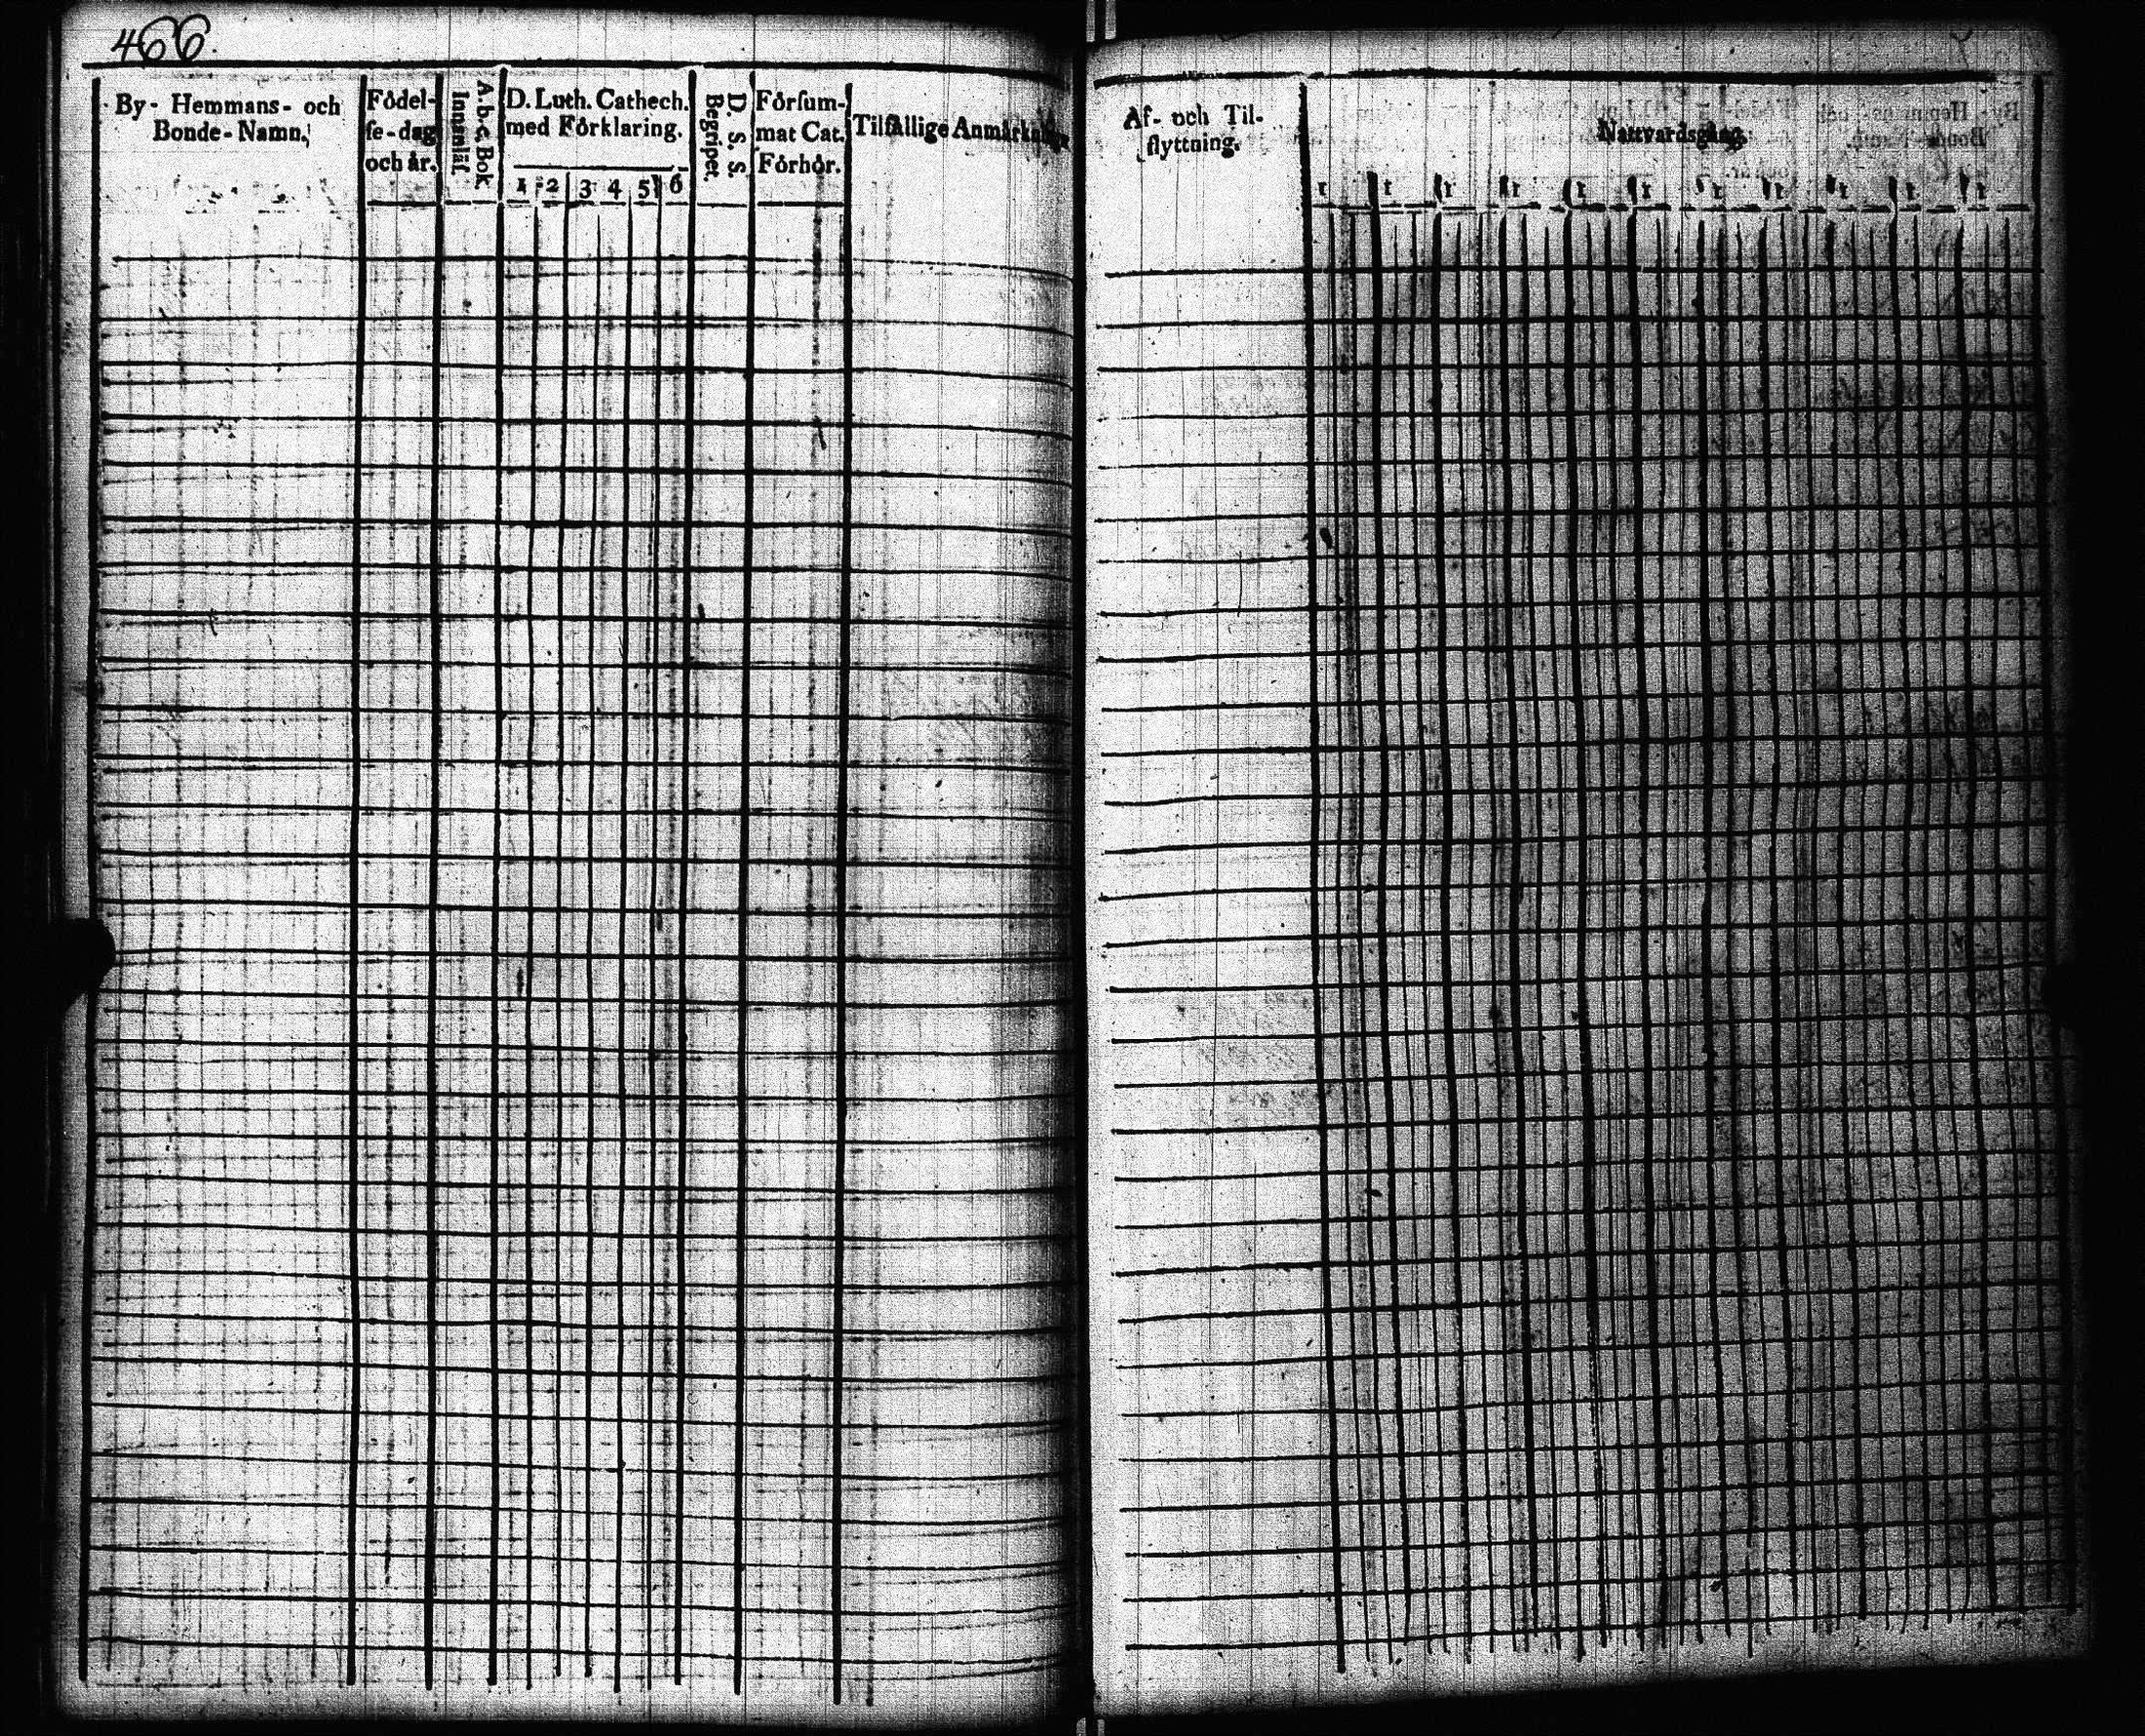 466.
By- Hemmans- och
Bonde-Namn.
Födel-
se-dag
och år.
A. b. c. Bok
Innanläs.
D. Luth. Cathech.
med Förklaring.
1 2 3 4 5 6
D. S. S.
Begripet.
Försum-
mat Cat.
Förhör.
Tilfällige Anmärkningar
Af- och Til-
flyttning.
Nattvardsgång.
1 1 1 1 1 1 1 1 1 1 1